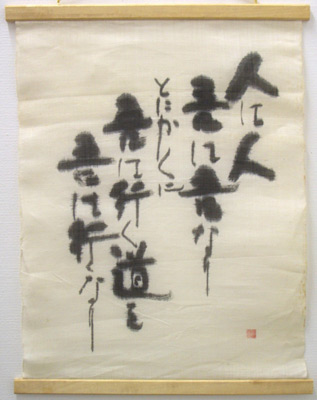 人は人
吾は吾なり
とにかくに
吾は行く道を
吾は行くなり